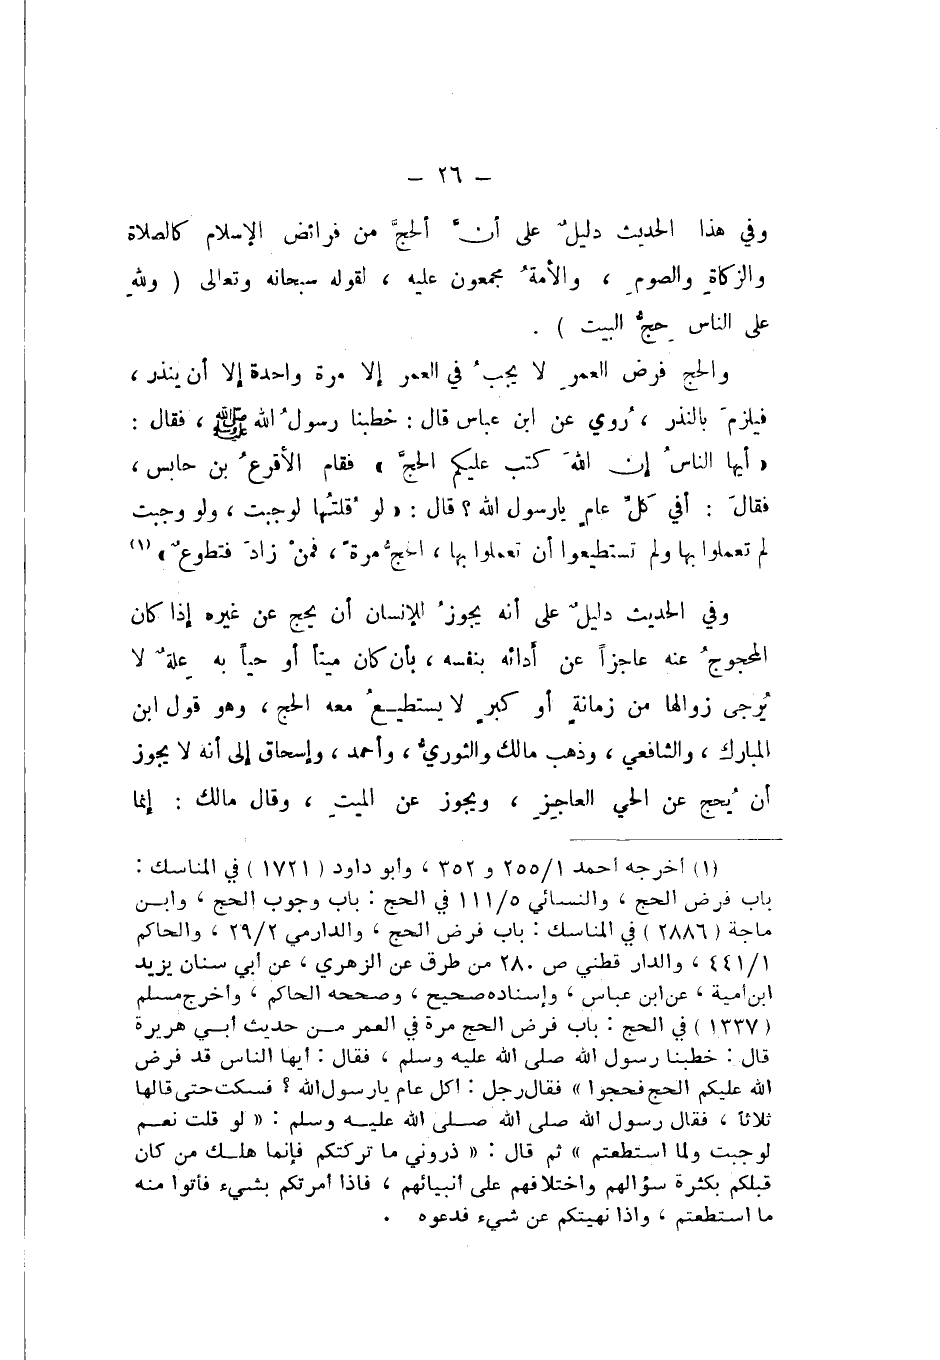 - ٢٦ -
وفي هذا الحديث دليلٌ على أنَّ ألحجَّ من فرائض الإسلام كالصلاة
والزكاةِ والصومِ ، والأمةُ مجمعون عليه ، لقوله سبحانه وتعالى ( وللهِ
على الناس حِجُّ البيت ) .
والحج فرض العمرِ لا يجبُ في العمر إلا مرة واحدة إلا أن ينذر ،
فيلزمَ بالنذر ، رُوي عن ابن عباس قال : خطبنا رسولُ الله ﷺ ، فقال :
« أيها الناسُ إن اللهَ كتب عليكم الحجَّ » فقام الأقرعُ بن حابس ،
فقالَ : أفي كلِّ عامٍ يارسول الله ؟ قال : « لو قُلتُها لوجبت ، ولو وجبت
لم تعملوا بها ولم تستطيعوا أن تعملوا بها ، الحجُّ مرةً ، فمنْ زادَ فتطوعٌ » (١)
وفي الحديث دليلٌ على أنه يجوزُ للإنسان أن يحج عن غيره إذا كان
المحجوجُ عنه عاجزاً عن أدائه بنفسه ، بأن كان ميتاً أو حياً به عِلةٌ لا
يُرجى زوالها من زمانةٍ أو كبرٍ لا يستطيعُ معه الحج ، وهو قول ابن
المبارك ، والشافعي ، وذهب مالك والثوريُّ ، وأحمد ، وإسحاق إلى أنه لا يجوز
أن يُحج عن الحي العاجِزِ ، ويجوز عن الميتِ ، وقال مالك : إنما
(١) أخرجه أحمد ٢٥٥/١ و ٣٥٢ ، وأبو داود ( ١٧٢١ ) في المناسك :
باب فرض الحج ، والنسائي ١١١/٥ في الحج : باب وجوب الحج ، وابن
ماجة ( ٢٨٨٦ ) في المناسك : باب فرض الحج ، والدارمي ٢٩/٢ ، والحاكم
٤٤١/١ ، والدار قطني ص ٢٨٠ من طرق عن الزهري ، عن أبي سنان يزيد
ابن أمية ، عن ابن عباس ، وإسناده صحيح ، وصححه الحاكم ، وأخرج مسلم
( ١٣٣٧ ) في الحج : باب فرض الحج مرة في العمر من حديث أبي هريرة
قال : خطبنا رسول الله صلى الله عليه وسلم ، فقال : أيها الناس قد فرض
الله عليكم الحج فحجوا » فقال رجل : أكل عام يارسول الله ؟ فسكت حتى قالها
ثلاثا ، فقال رسول الله صلى الله صلى الله عليه وسلم : « لو قلت نعم
لوجبت ولما استطعتم » ثم قال : « ذروني ما تركتكم فإنما هلك من كان
قبلكم بكثرة سؤالهم واختلافهم على أنبيائهم ، فاذا أمرتكم بشيء فأتوا منه
ما استطعتم ، واذا نهيتكم عن شيء فدعوه .